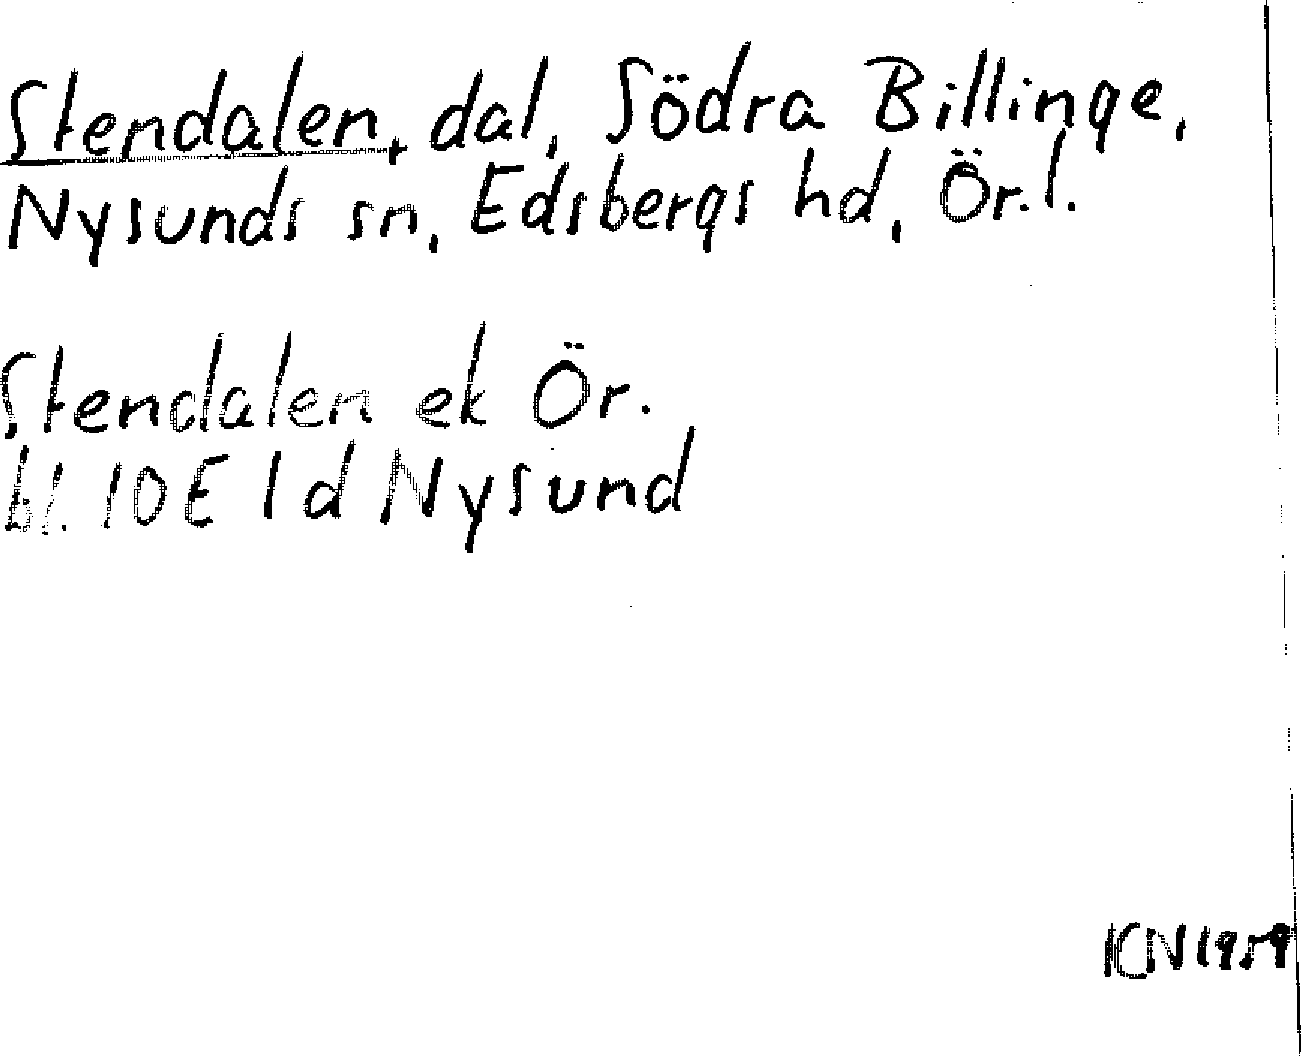 Stendalen, dal, Södra Billinge,
Nysunds sn, Edsbergs hd, Ör. l.
Stendalen ek Ör.
bl. 10E 1d Nysund
KN 1959